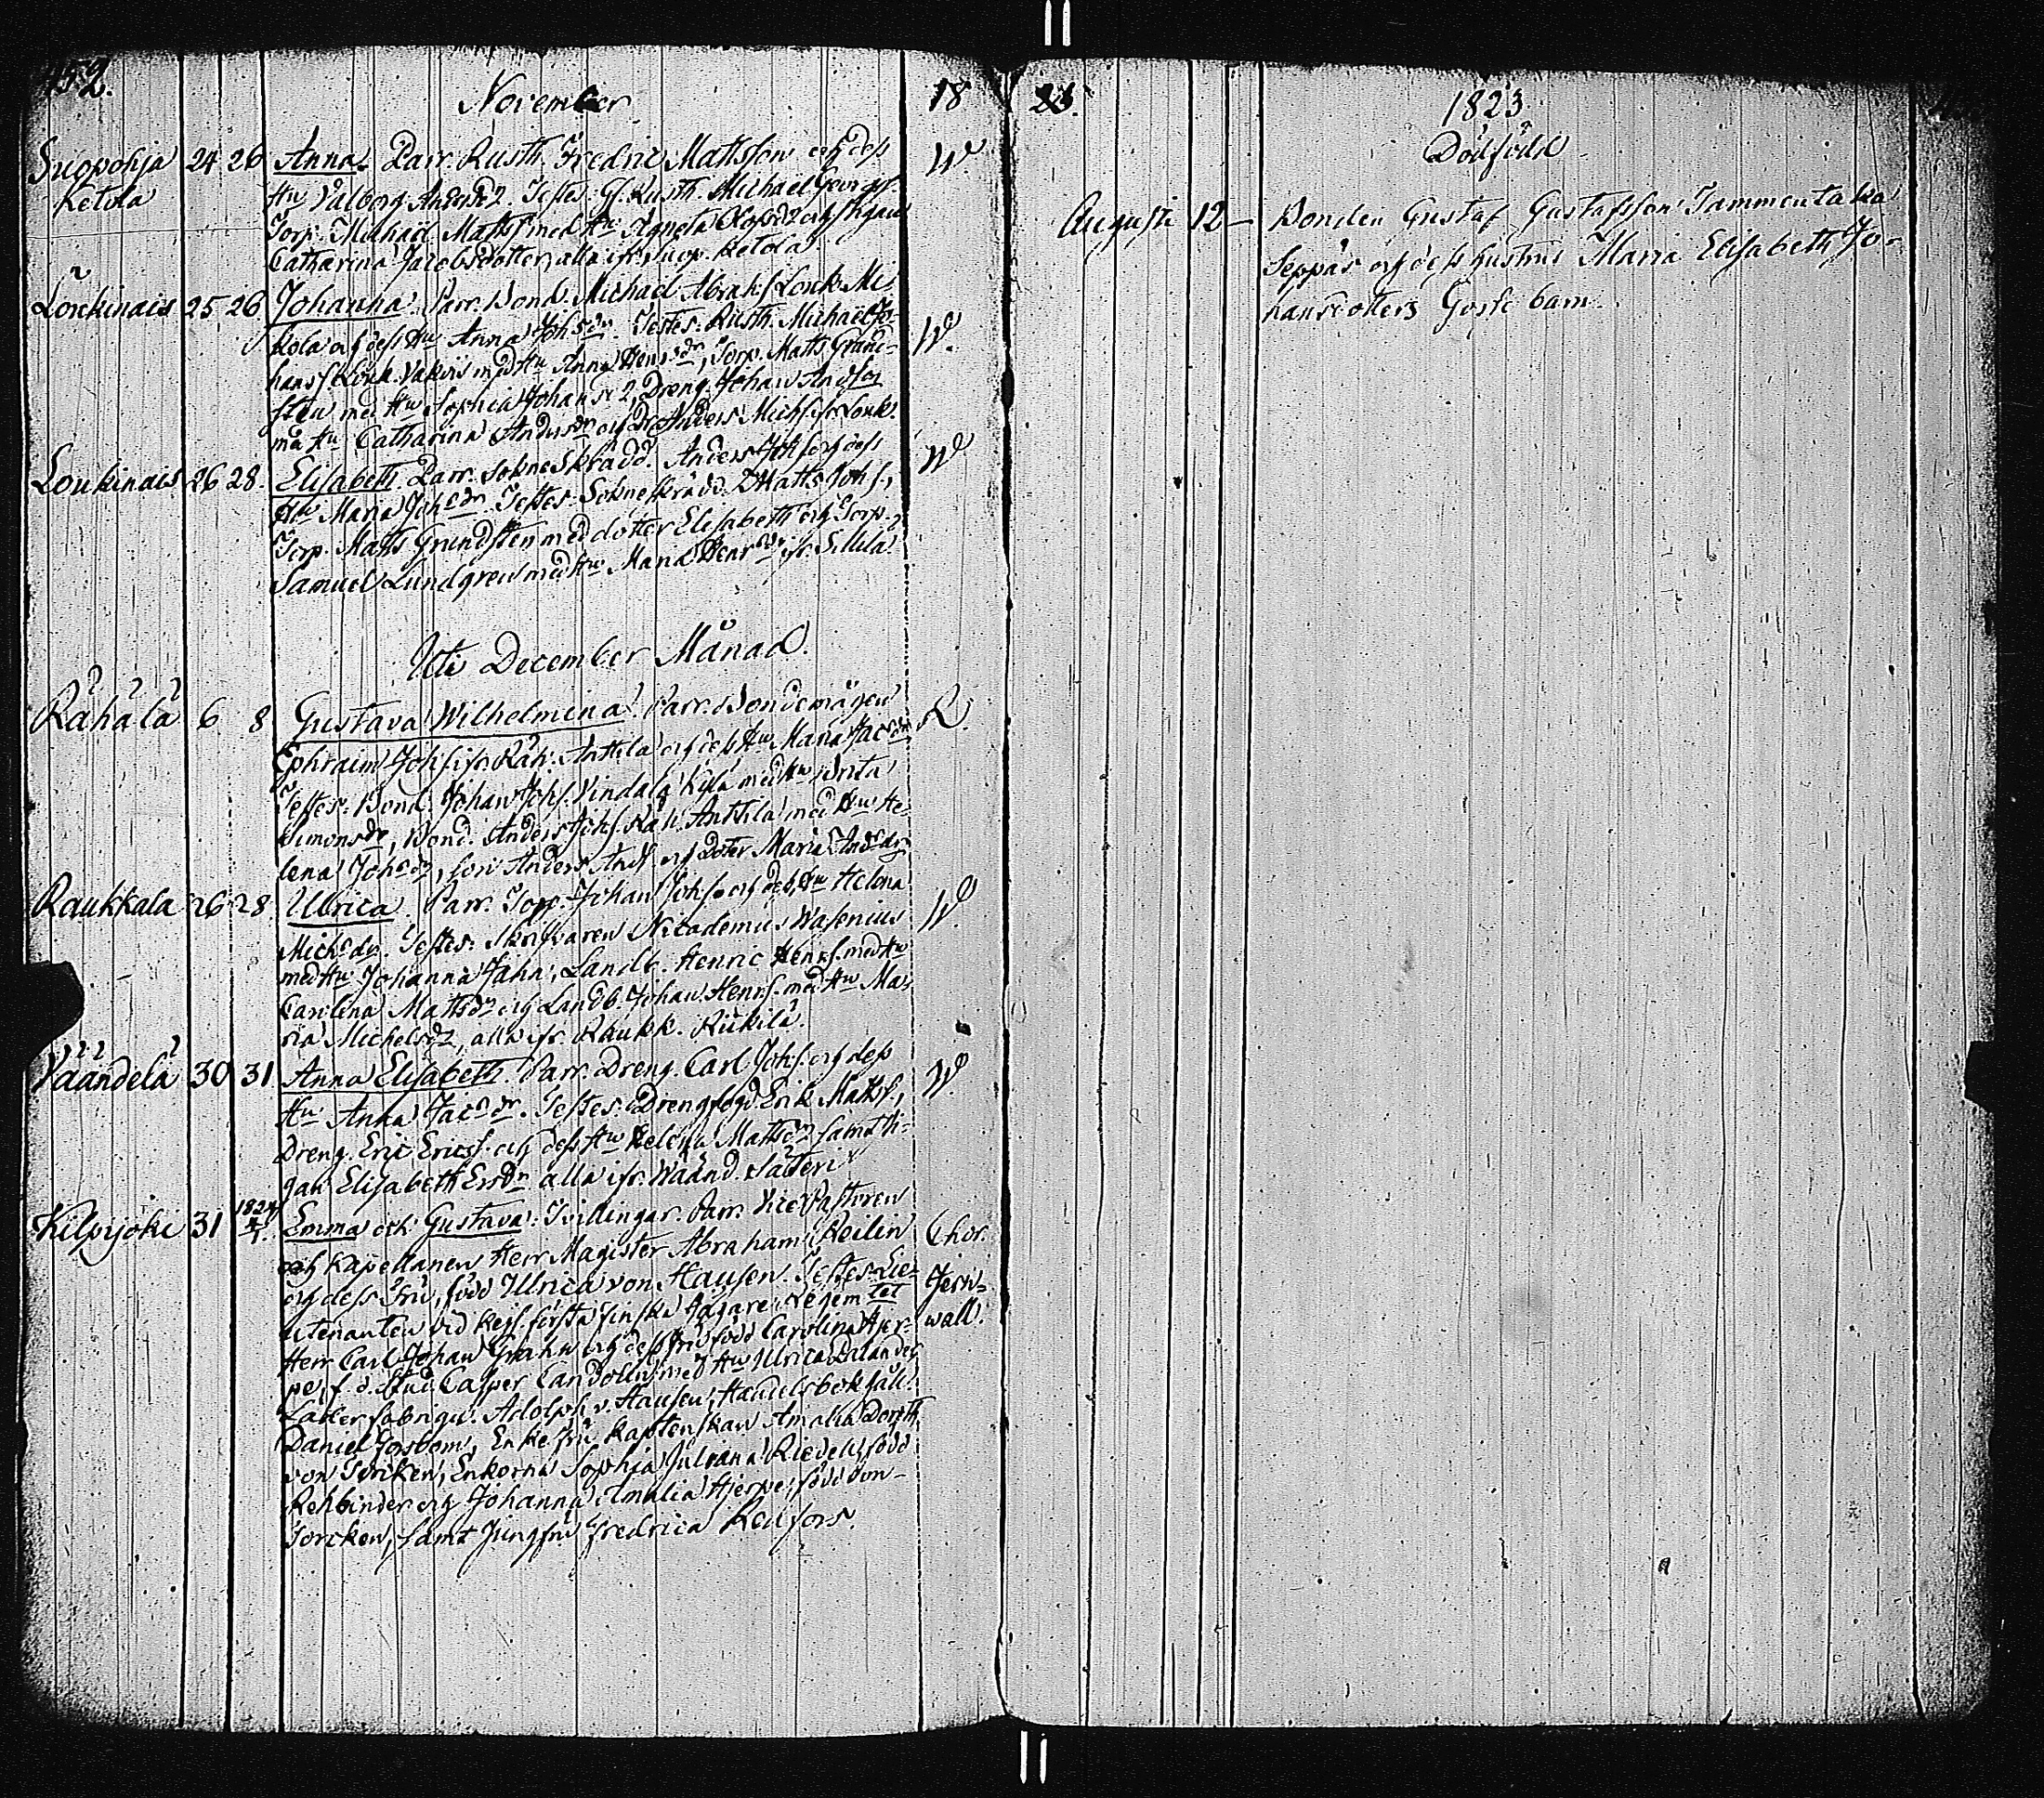 452.
November
18
Suopohja Ketola 24 26 Anna. Parr. Rusth. Fredric Mattsson och dess W.
Hu Valborg Andersdr. Testes: Gf. Rusth. Michaël Georgss.
Torp. Michaël Mattss. med Hu Agneta Olofsdr och Pigan
Catharina Jacobsdotter, alla ifr. Suop. Ketola
Loukinais 25 26 Johanna. Parr. Bond. Michaël Abrah:s Louk. Mi-
kola och dess Hu Anna Joh:sdr. Testes: Rusth. Michaël Jo- W.
hanss. Louk. med Hu Anna Henr:sdr, Torp. Matts Grund-
sten med Hu Sophia Johansdr, Dreng. Johan Andsson
med Hu Catharina Andersdr och Anders Michs. ifr. Louk.
Loukinais 26 28. Elisabeth. Parr. Sokneskrädd. Anders Joh:s. och dess W
Hu Maria Joh:sdr. Testes: Sokneskrädd. Matts Johs.,
Torp. Matts Grundsten med dotter Elisabeth och Torp.
Samuel Lundgren med Hu Maria Henr:sdr ifr. Sillilä
Uti December Månad.
Råhälä 6 8 Gustava Wilhelmina. Parr. Bondemågen R.
Ephraim Johs. ifr. Räh. Anttila och dess Hu Maria Jac:sdr
Testes: Bond. Johan Johs. Vindala Kylä med Hu Brita
Simonsdr, Bond. Anders Johs. Räh. Anttila med Hu He-
lena Joh:sdr, son Anders Ands. och doter Maria And:sdr
Raukkala 26 28 Ulrica. Parr. Torp. Johan Johs. och dess Hu Helena W.
Mich:sdr. Testes: Skrifvaren Nicodemus Wasenius
med Hu Johanna Jahn, Landb. Henric Henrs. med Hu
Carolina Mattsdr och Landb. Johan Henrs. med Hu Ma-
ria Michelsdr, alla ifr. Raukk. Rickilä.
Väändelä 30 31 Anna Elisabeth. Parr. Dreng. Carl Johs. och dess W.
Hu Anna Jac:sdr. Testes: Drengfogd. Erik Mattss.,
Dreng. Eric Ericss. och dess Hu Helena Mattsdr samt Pi-
gan Elisabeth Ersdr alla ifr. Wäänd. Säteri
Kilpijoki 31 1824 1/1. Emma och Gustava. Tvillingar. Parr. Vice Pastoren
och Kapellanen Herr Magister Abraham Reilin Chor.
och dess Fru, född Ulrica von Hausen. Testes: Lie- Jern-
utenanten vid Kejs. första finska Jägare Regemtet wall.
Herr Carl Johan Grahn och dess Fru född Carolina Hjer-
pe, f. d. Stud. Casper Candolin med Hu Ulrica Dalander
Lakerfabriqu. Adolph v. Hausen, Handelsbokhåll.
Daniel Forsbom, Enkefru Kaptenskan Amalia Doroth.
von Torcken, Enkorna Sophia Juliana Riedell, född
Rehbinder och Johanna Amalia Hjerpe, född von
Torcken, samt Jungfru Fredrica Renfors.
23.
1823
Dödfödd
Augusti 12 – Bonden Gustaf Gustafsson Tammentaka
Seppäs och dess hustrus Maria Elisabeth Jo-
hansdotters Gosse barn.